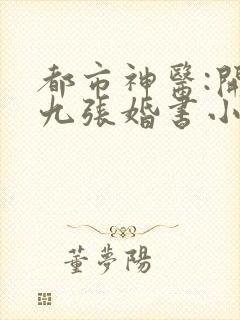 都市神醫:開
九張婚書小
董夢陽